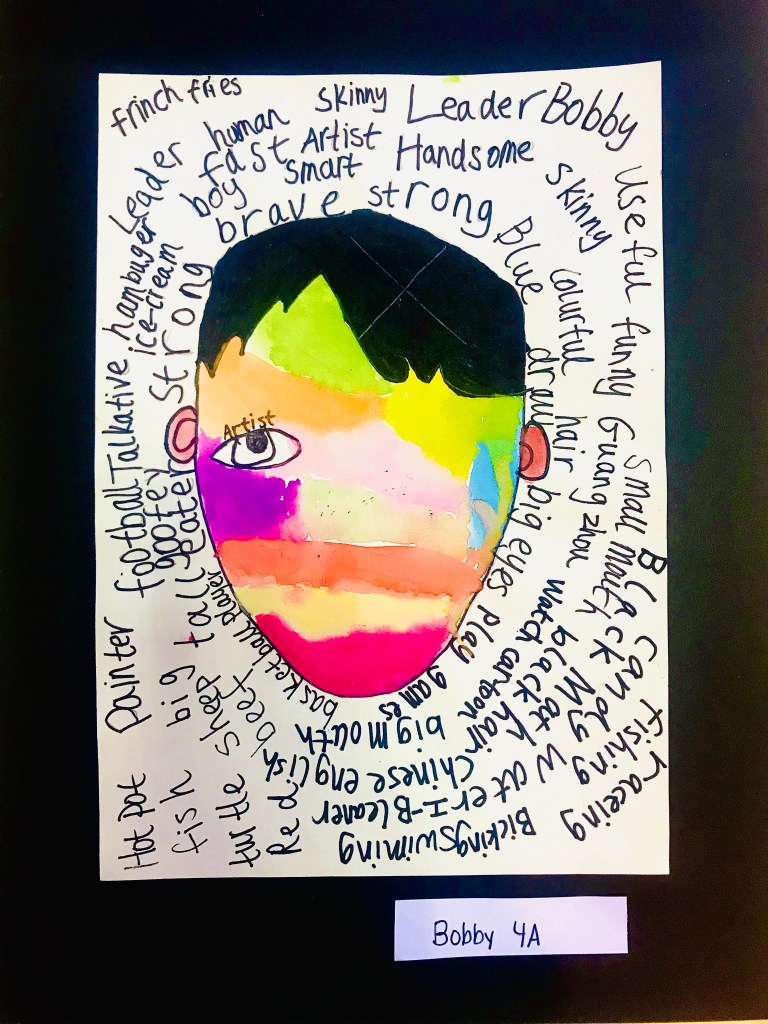 frinch fries
human skinny Leader Bobby
Leader fast Artist Handsome skinny
boy smart
brave strong Blue
Useful funny Guangzhou
colurful hair
draw big eyes Play games
small mouth
Black candy fishing racceing
watch cartoon
black hair Math Water
big mouth
Chinese english
I-Bleaner
Bickingswiming
hambuger
ice-cream
strong
Talkative
football
gootey
eater
Artist
painter
big tall
basket ball Player
Hot pot
fish
turtle sheep
Red beef
Bobby 4A